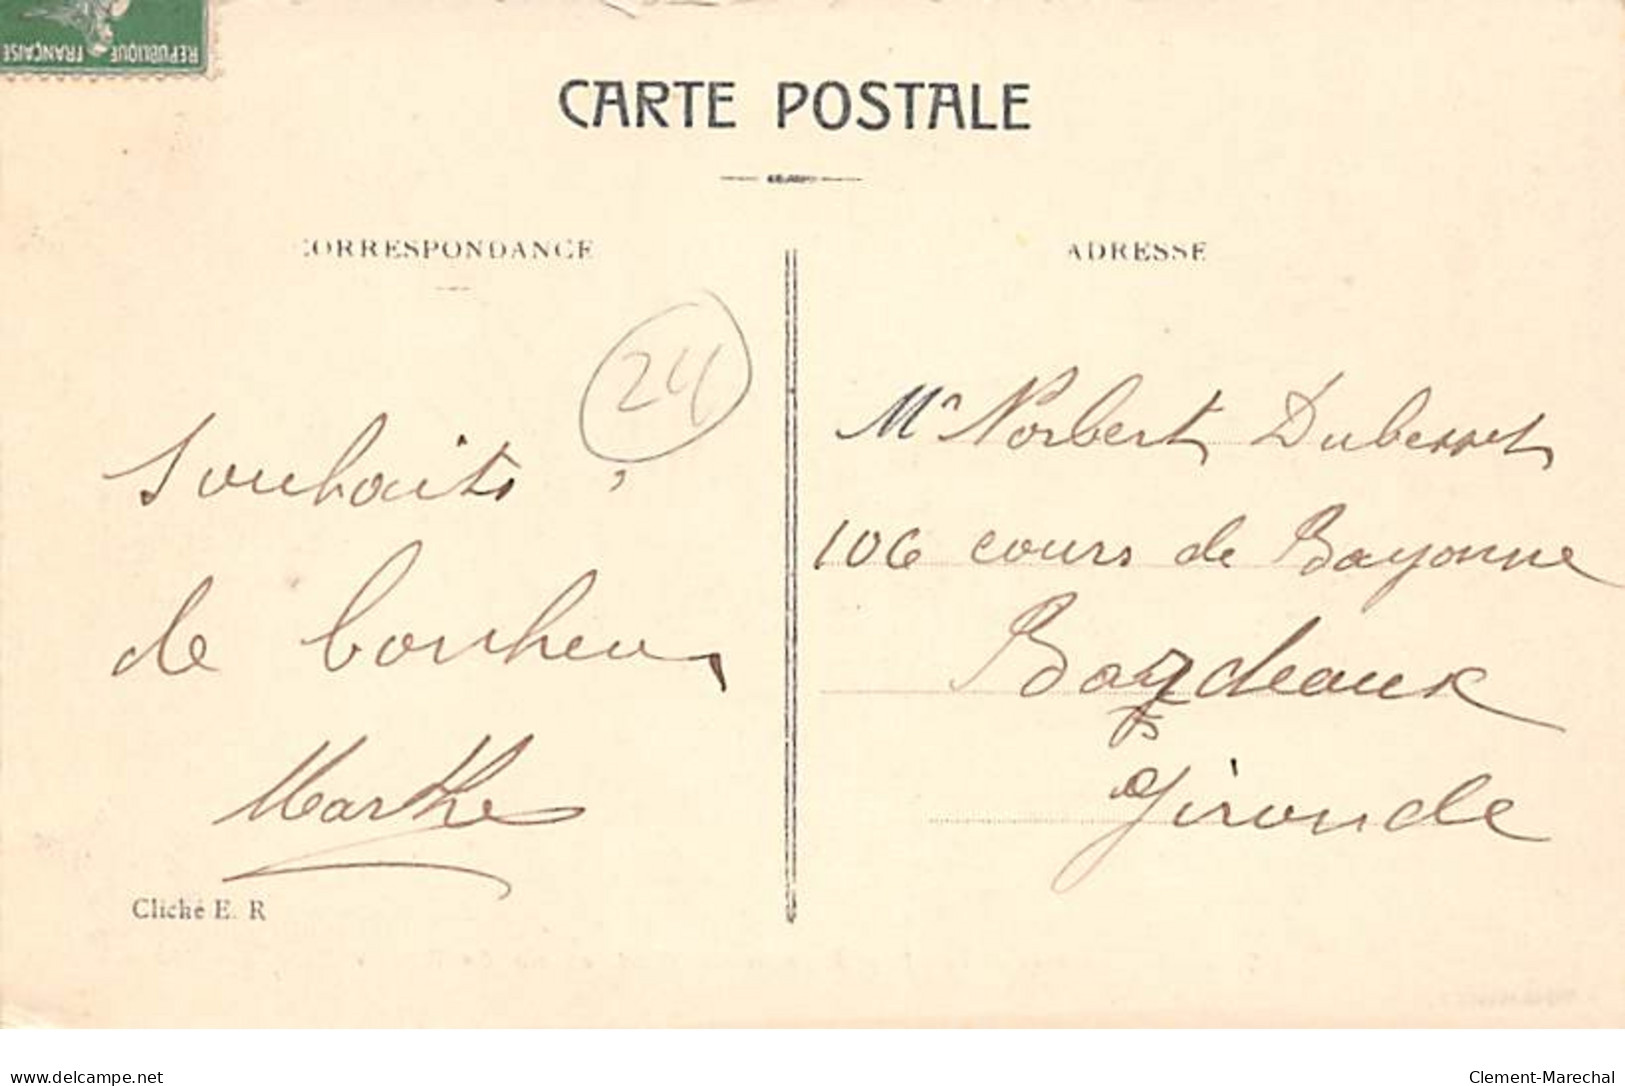 REPUBLIQUE FRANÇAISE
CARTE POSTALE
CORRESPONDANCE
ADRESSE
24
Souhaits
de bonheur
Marthe
Mr Norbert Dubesset
106 cours de Bayonne
Bordeaux
Gironde
Cliché E. R
www.delcampe.net
Clement-Marechal